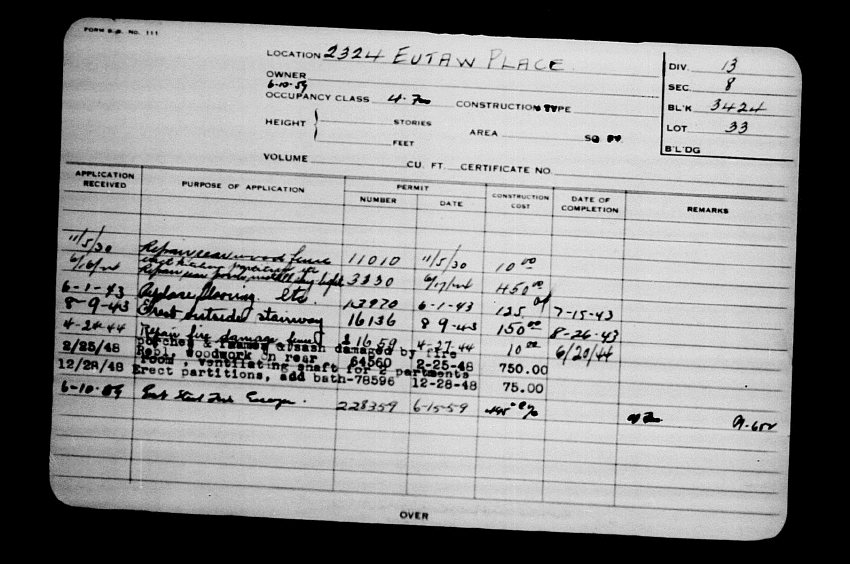 FORM B.B. NO. 111
LOCATION 2324 EUTAW PLACE
DIV. 13
OWNER
SEC. 8
6-10-59
OCCUPANCY CLASS 4-7 CONSTRUCTION TYPE
BL'K 3424
HEIGHT STORIES
AREA SQ. FT.
LOT 33
FEET
B'L'DG
VOLUME CU. FT. CERTIFICATE NO.
APPLICATION RECEIVED PURPOSE OF APPLICATION PERMIT NUMBER DATE CONSTRUCTION COST DATE OF COMPLETION REMARKS
11/5/30 Repair rear wood fence 11010 11/5/30 10 00
Repair rear 3330 450 00
6-1-43 Replace flooring etc. 13970 6-1-43 125 7-15-43
8-9-43 Erect outside stairway 16136 8 9-43 150 00 8-26-43
4-24-44 Repair fire damage 21659 4-27-44 10 00 6/20/44
porches & frames & sash damaged by fire
2/25/48 Repl. woodwork on rear 64560 2-25-48 750.00
room, ventilating shaft for 2 partments
12/28/48 Erect partitions, add bath-78596 12-28-48 75.00
6-10-59 Steel Fire Escape. 228359 6-15-59
OVER